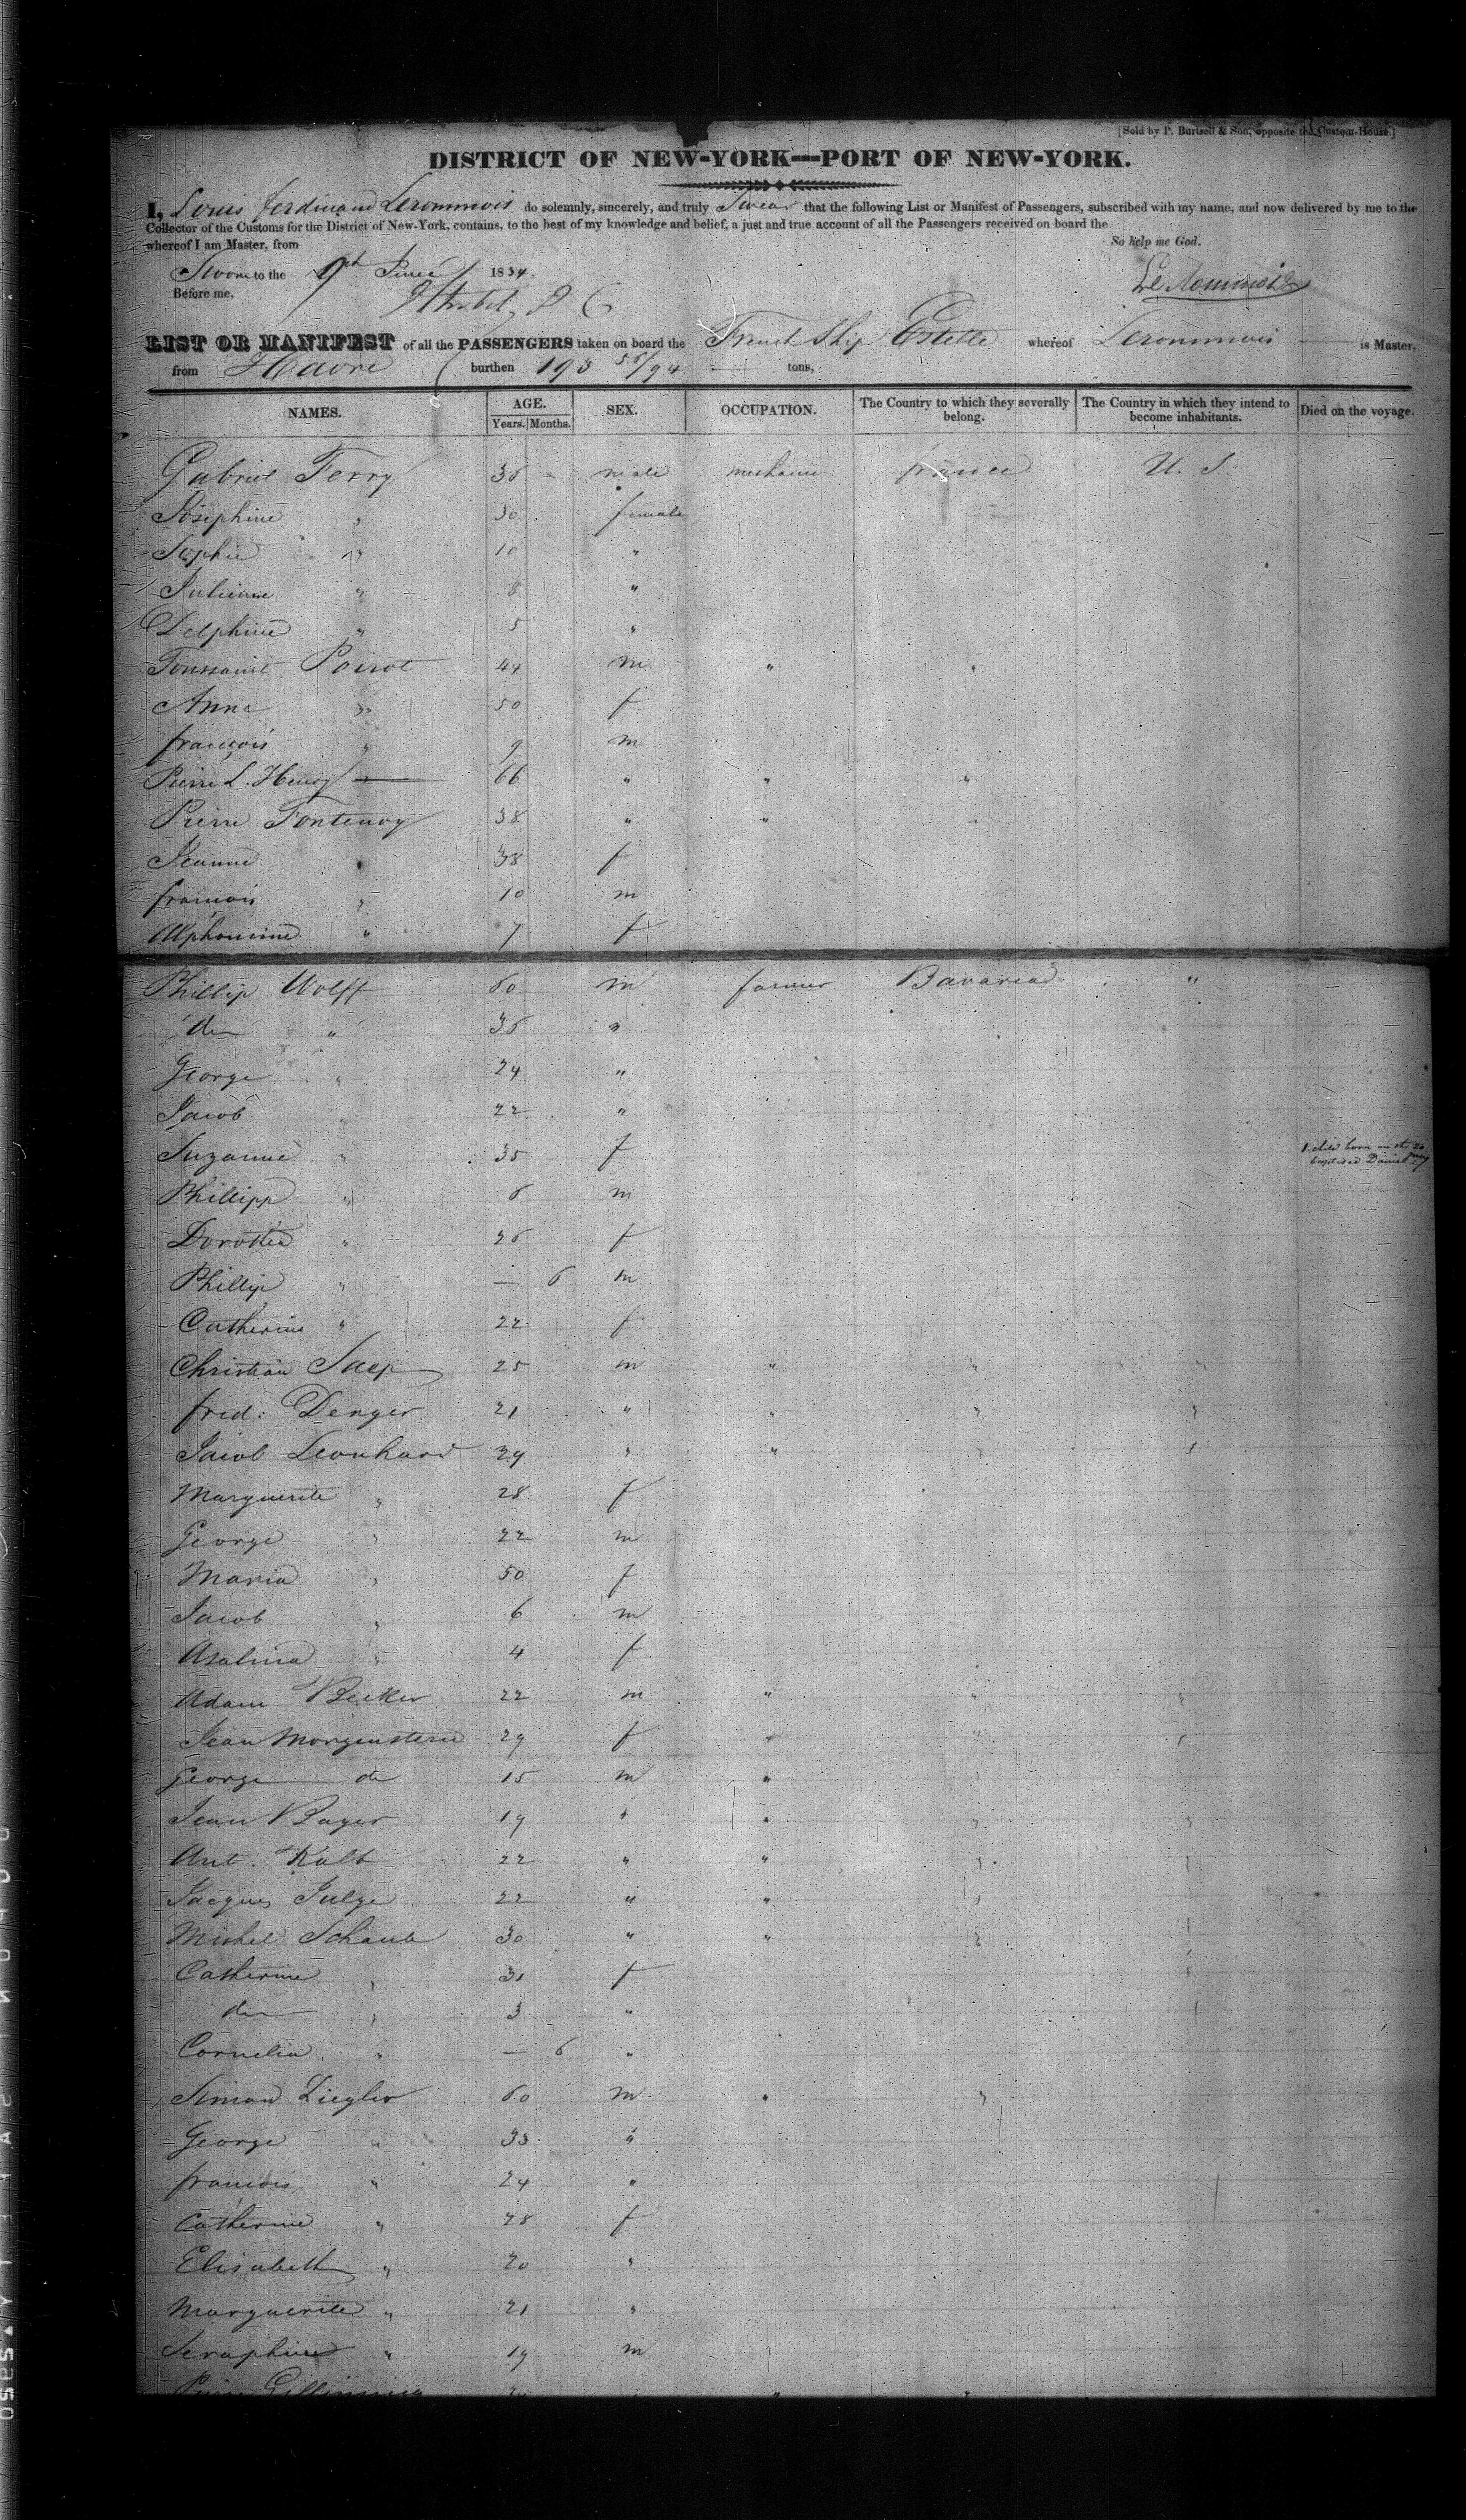 [Sold by P. Burtsell & Son, opposite the Custom-House.]
DISTRICT OF NEW-YORK---PORT OF NEW-YORK.
I, Louis ferdinand Lerommois do solemnly, sincerely, and truly Swear that the following List or Manifest of Passengers, subscribed with my name, and now delivered by me to the
Collector of the Customs for the District of New-York, contains, to the best of my knowledge and belief, a just and true account of all the Passengers received on board the
whereof I am Master, from So help me God.
Sworn to the 9th June 1834.
Before me,
LIST OR MANIFEST of all the PASSENGERS taken on board the French Ship Estelle whereof Lerommois is Master,
from Havre burthen 193 56/94 tons,
NAMES. AGE. Years. Months. SEX. OCCUPATION. The Country to which they severally belong. The Country in which they intend to become inhabitants. Died on the voyage.
Gabriel Ferry 36 - male mechanic france U. S.
Josephine " 30 female
Sophie " 10 "
Julienne " 8 "
Delphine " 5 "
Toussaint Poirot 44 m " "
Anne " 50 f
françois " 9 m
Pierre L. Henry — 66 " " "
Pierre Fontenoy 38 " " "
Jeanne " 38 f
francois " 10 m
Alphonsine " 7 f
Phillip Wolff 60 m farmer Bavaria "
do " 36 "
George " 24 "
Jacob " 22 "
Suzanne " 35 f 1 child born on the 20 May baptised Daniel
Phillipp " 6 m
Dorothea " 26 f
Phillip " — 6 m
Catherine " 22 f
Christian 25 m " " "
fred: Denger 21 " " " "
Jacob Leonhard 39 " " " "
Marguerite " 28 f
George " 22 m
Maria " 50 f
Jacob " 6 m
" 4 f
Adam Becker 22 m " " "
Jean Morgenstern 29 f " " "
George do 15 m " "
Jean Bayer 19 " " " "
Ant. Kalb 22 " " " "
Jacques 22 " " "
Michel Schaub 30 " " " "
Catherine " 31 f "
do " 3 " "
Cornelia " — 6 "
Simon Ziegler 60 m " "
George " 33 "
francois " 24 "
Catherine " 28 f
Elisabeth " 20 "
Marguerite " 21 "
Seraphine " 19 m
Pierre